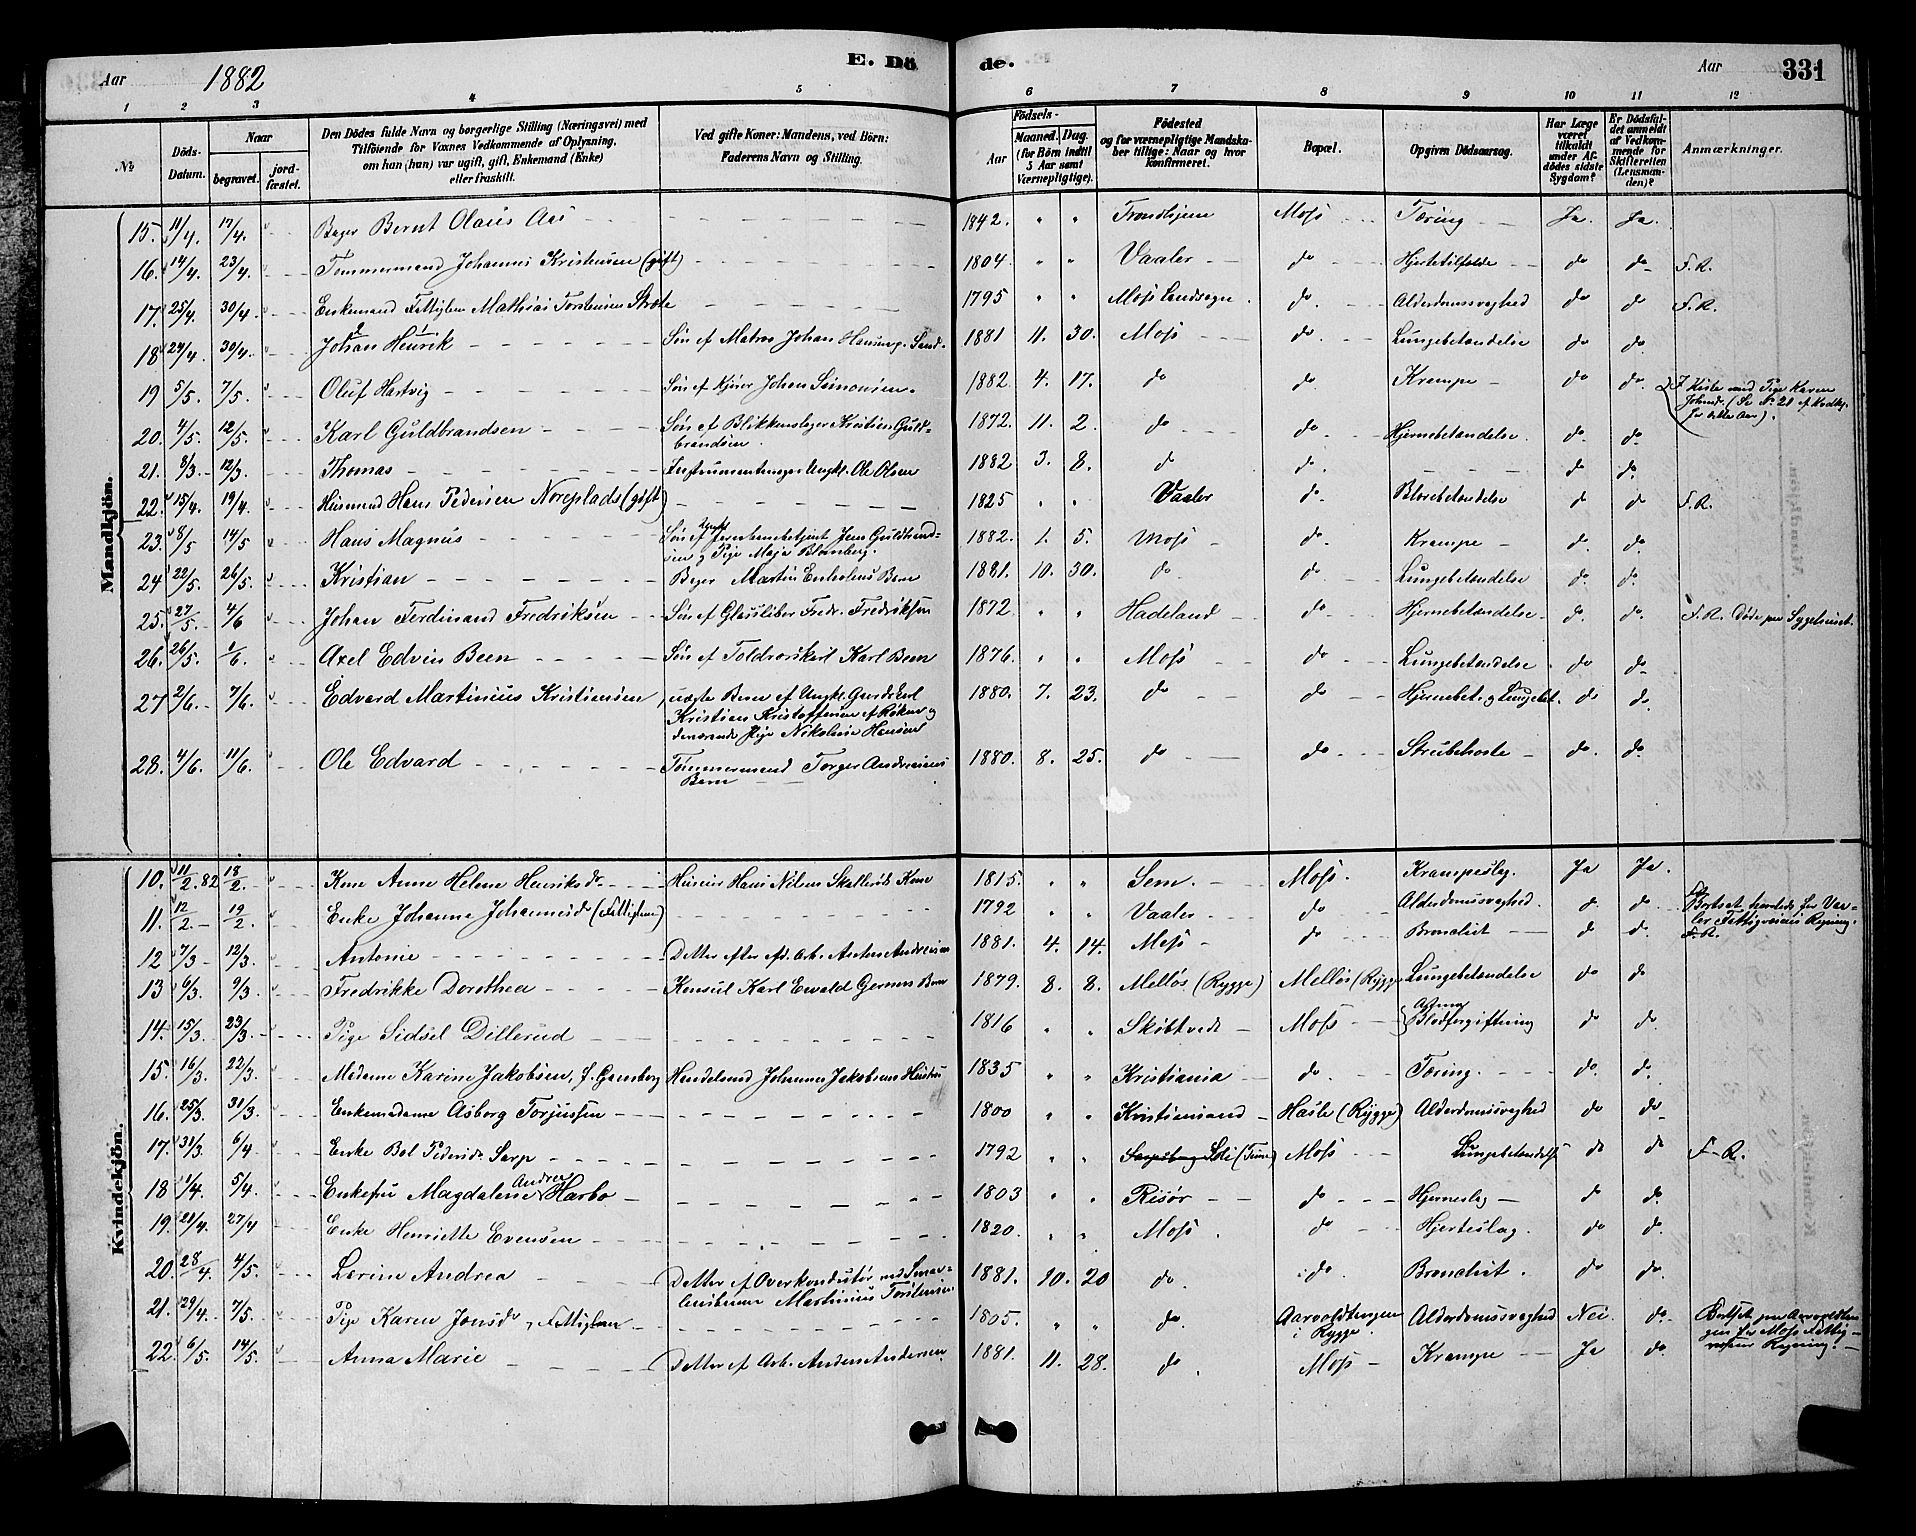 Aar 1882 E. Dö de. Aar 331
1 2 3 4 5 6 7 8 9 10 11 12
№ Döds-Datum. Naar begravet. jordfæstet. Den Dödes fulde Navn og borgerlige Stilling (Næringsvei) med Tilföiende for Voxnes Vedkommende af Oplysning, om han (hun) var ugift, gift, Enkemand (Enke) eller fraskilt. Ved gifte Koner: Mandens, ved Börn: Faderens Navn og Stilling. Födsels- Aar Maaned. Dag. (for Börn indtil 5 Aar samt Værnepligtige). Födested og for værnepligtige Mandskaber tillige: Naar og hvor konfirmeret. Bopæl. Opgiven Dödsaarsag. Har Læge været tilkaldt under Afdödes sidste Sygdom? Er Dödsfaldet anmeldt af Vedkommende for Skifteretten (Lensmanden)? Anmærkninger.
Mandkjön.
15. 11/4. 17/4. Bager Bernt Olaus Aas 1842. " " Trondhjem Moss Tæring Ja. Ja.
16. 14/4. 23/4. Tømmermand Johannes Kristensen (gift) 1804. " " Vaaler do Hjertetilfælde do do F.R.
17. 25/4. 30/4. Enkemand Fattiglem Mathias Torstensen 1795 " " Moss Landsogn do. Alderdomssvaghed do do F.R.
18 24/4. 30/4. Johan Henrik Søn af Matros Johan 1881 11. 30. Moss do. Lungebetændelse do do.
19 5/5. 7/5. Oluf Hartvig Søn af Johan Simonsen 1882 4. 17. do do. Krampe do do. I Kiste med Pige Karen Jonsd. (Se No 21 af Kvdkj. for dette Aar).
20. 4/5. 12/5. Karl Guldbrandsen Søn af Blikkenslager Kristian Guldbrandsen 1872. 11. 2. do do. Hjernebetændelse. do do.
21. 8/3. 12/3. Thomas Instrumentmager Ungk. Ole Olsen 1882 3. 8. d do. do do.
22. 15/4. 19/4. Husmand Hans Pedersen Noreplads (gift) 1825 " " Vaaler do. Blærebetændelse do do F.R.
23. 8/5 14/5 Hans Magnus 1882. 1. 5. Moss do. Krampe do. do.
24 22/5. 26/5. Kristian Bager Martin Barn 1881. 10. 30. do do. Lungebetændelse do. do.
25. 27/5. 4/6 Johan Ferdinand Fredriksen Søn af Glassliber Fredr. Fredriksen 1872 " " Hadeland do. Hjernebetændelse. do. do. F.R. Døde paa Sygehuset.
26. 26/5. 1/6. Axel Edvin Been Søn af Karl Been 1876. " " Moss do Lungebetændelse do do.
27 2/6. 7/6. Edvard Martinius Kristiansen, uægte Barn af Ungk. Gaardskarl Kristian Kristoffersen af Røken og Pige Nikoline Hansen 1880. 7. 23. do do Hjernebet. og Lungebet. do do.
28. 4/6. 11/6. Ole Edvard Tømmermand Torger Andreasens Barn 1880. 8. 25. do do Strubehoste do. do.
Kvindekjön.
10. 11/2. 82 18/2. Kone Anne Helene Henriksdr. Husm. Hans Nilsen Kone 1815. " " Sem. Moss. Krampeslag. Ja Ja.
11. 12/2. 19/2. Enke Johanne Johannesdr. (Fattiglem) 1792 " " Vaaler do Alderdomssvaghed d. do. Bortsat hersteds for Vaaler Fattigvæsens Regning. F.R.
12 7/3 12/3. Antonie Datter efter afd. Arb. Anton Andreasen 1881. 4. 14. Moss do Bronchit d do.
13 6/3. 9/3. Fredrikke Dorothea Konsul Karl Ewald Barn 1879. 8. 8. Melløs (Rygge) Melløs (Rygge Lungebetændelse do do
14. 15/3. 23/3. Pige Sidsel Dillerud 1816 " " Skøbtvedt Moss Astma Blodforgiftning do do
15. 16/3. 22/3. Madame Karine Jakobsen, f. Gamborg Handelsmd Johannes Jakobsens Hustru 1835 " " Kristiania do. Tæring. do. do.
16. 25/3. 31/3. Enkemadame Asborg Torjussen 1800 " " Kristiansand Hasle (Rygge) Alderdomssvaghed do do
17. 31/3. 6/4 Enke Bol Pedersdr. Sarp 1792 " " Sarpsborg Soli (Tune) Moss Lungebetændelse do do F.R.
18 1/4. 5/4. Enkefru Magdalene Andrea Harbo 1803 " " Risør do. Hjerneslag do do.
19. 21/4. 27/4 Enke Henriette Evensen 1820. " " Moss do Hjerteslag do do.
20. 28/4. 4/5. Larine Andrea Datter af Overkonduktør ved Smaalensbanen Martinius Torstensen 1881. 10. 20 do. do. Bronchit. do do.
21. 29/4. 7/5. Pige Karen Jonsdr., Fattiglem 1805. " " do. Aarvoldtangen i Rygge. Alderdomssvaghed Nei do. Bortsat paa Aarvoldtangen for Moss Fattigvæsens Regning.
22. 6/5. 14/5. Anna Marie Datter af Arb. Anders Andersen 1881. 11. 28. do. Moss Krampe Ja do.